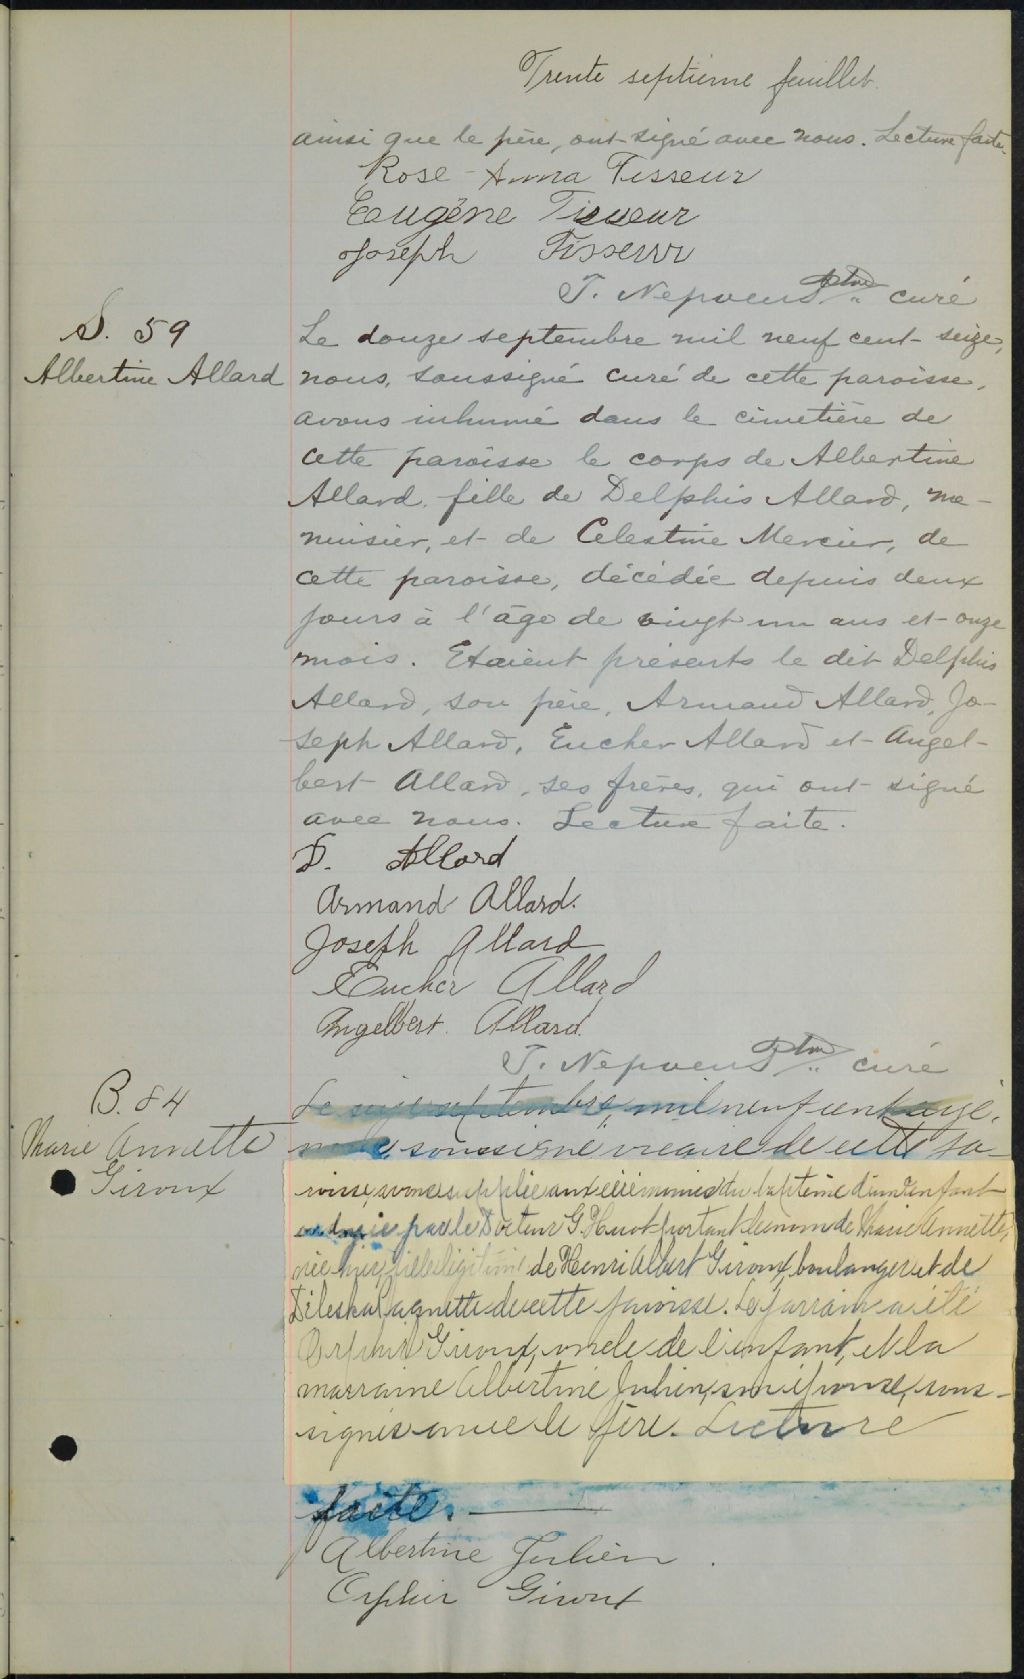 Trente septième feuillet.
ainsi que le père, ont signé avec nous. Lecture faite.
Rose-Anna Tisseur
Eugène Tisseur
Joseph Tisseur
T. Nepveu Ptre curé
S. 59
Albertine Allard
Le douze septembre mil neuf cent seize,
nous, soussigné curé de cette paroisse,
avons inhumé dans le cimetière de
cette paroisse le corps de Albertine
Allard, fille de Delphis Allard, me-
nuisier, et de Celestine Mercier, de
cette paroisse, décédée depuis deux
jours à l'âge de vingt un ans et onze
mois. Etaient présents le dit Delphis
Allard, son père, Armand Allard, Jo-
seph Allard, Eucher Allard et Angel-
bert Allard, ses frères, qui ont signé
avec nous. Lecture faite.
D. Allard
Armand Allard.
Joseph Allard
Eucher Allard
Angelbert Allard.
T. Nepveu Ptre curé
B. 84
Marie Annette
Giroux
Le septembre, mil neuf cent seize,
nous, soussigné vicaire de cette pa-
roisse, avons supplée aux cérémonies du baptême d'un enfant
par le Docteur G. Huot portant le nom de Marie Annette,
née hier, fille légitime de Henri Albert Giroux, boulanger et de
de cette paroisse. Le parrain a été
Orphir Giroux, oncle de l'enfant, et la
marraine Albertine Julien, son épouse, sous-
signés avec le père. Lecture
faite.
Albertine Julien.
Orphir Giroux